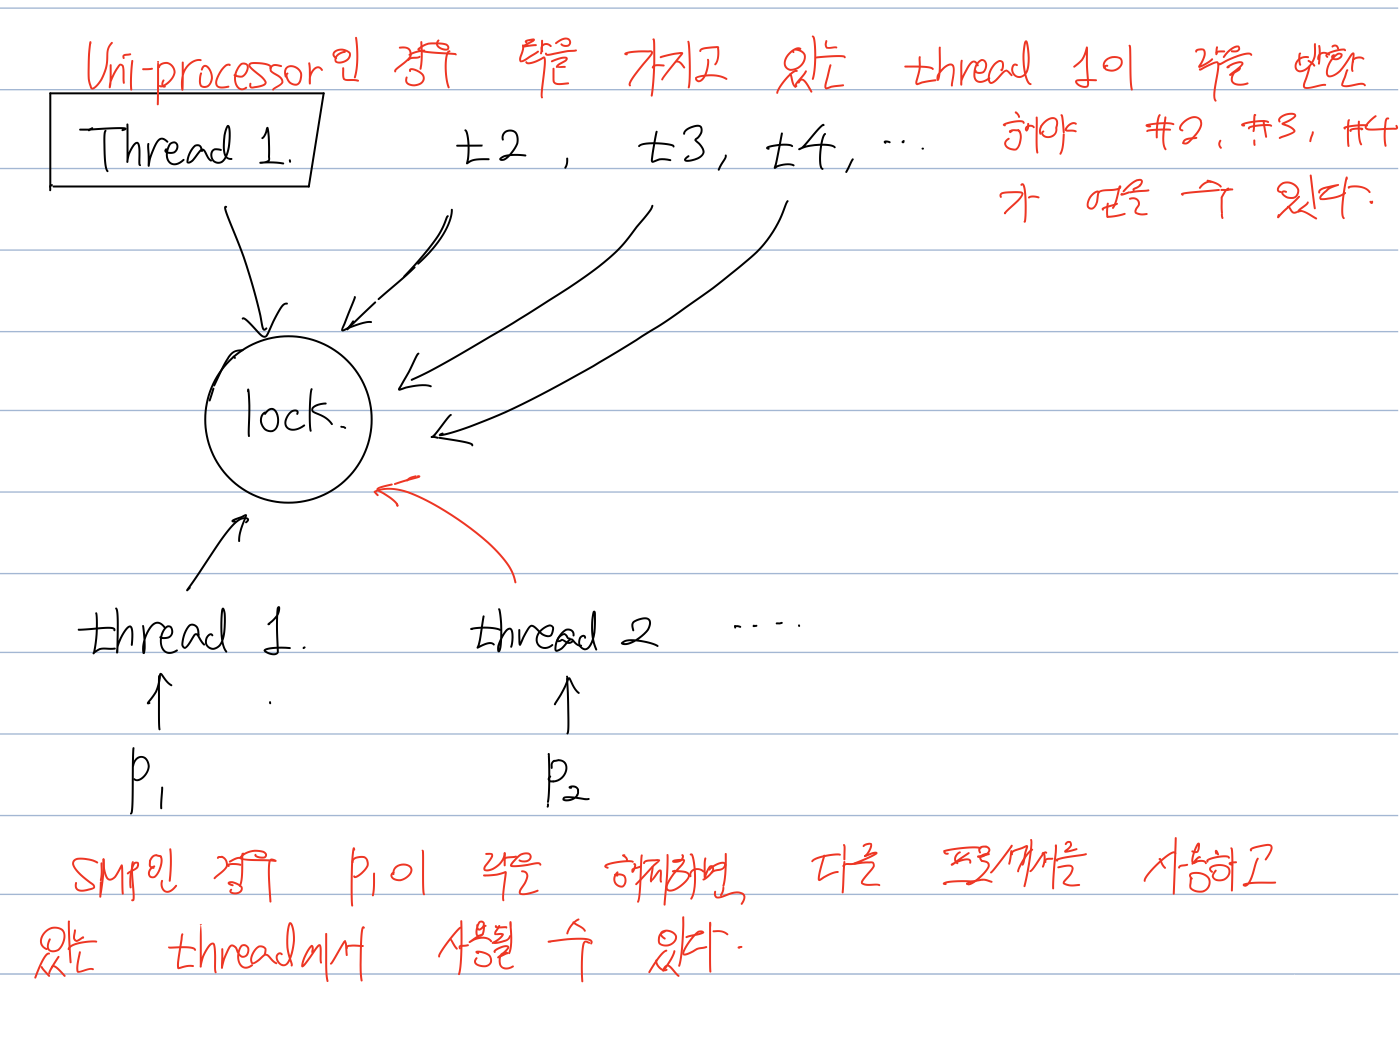 Uni-processor인 경우 락을 가지고 있는 thread 1이 락을 반환
해야 #2, #3, #4
가 얻을 수 있다.
Thread 1. t2, t3, t4, ...
lock.
thread 1. thread 2 ....
P1 P2
SMP인 경우 P1이 락을 해제하면, 다른 프로세서를 사용하고
있는 thread에서 사용될 수 있다.